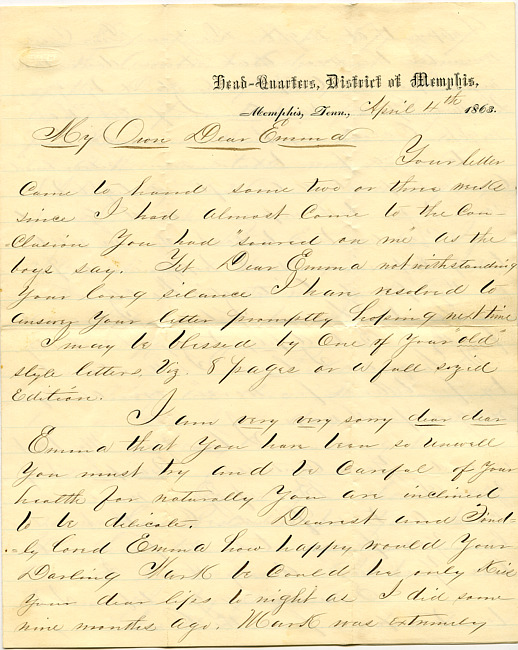 Head-Quarters, District of Memphis,
Memphis, Tenn., April 4th 1863.
My Own Dear Emma
Your letter
came to hand some two or three weeks
since I had almost come to the Con-
-clusion You had "soured on me" as the
boys say. Yet Dear Emma notwithstanding
Your long silance I han resolved to
answer Your letter promptly hoping next time
I may be blessed by One of Your "old"
style letters, Viz. 8 pages or a full sized
Edition.
I am very very sorry dear dear
Emma that You han been so unwell
You must try and be Careful of Your
health for naturally You are inclined
to be delicate. Dearest and Fond-
-ly loved Emma how happy would Your
Darling Mark be could he only kiss
Your dear lips to night as I did some
nine months ago. Mark was extremely